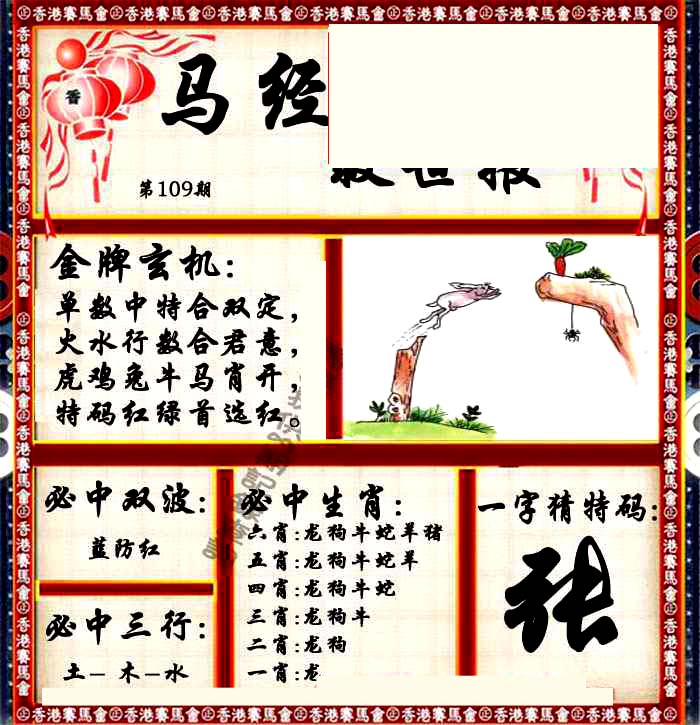 香港賽馬會
马经
救世报
第109期
香
金牌玄机:
单数中特合双定,
火水行数合君意,
虎鸡兔牛马肖开,
特码红绿首选红。
必中双波:
蓝防红
必中三行:
土－木－水
必中生肖:
六肖:龙狗牛蛇羊猪
五肖:龙狗牛蛇羊
四肖:龙狗牛蛇
三肖:龙狗牛
二肖:龙狗
一肖:龙
一字猜特码:
张